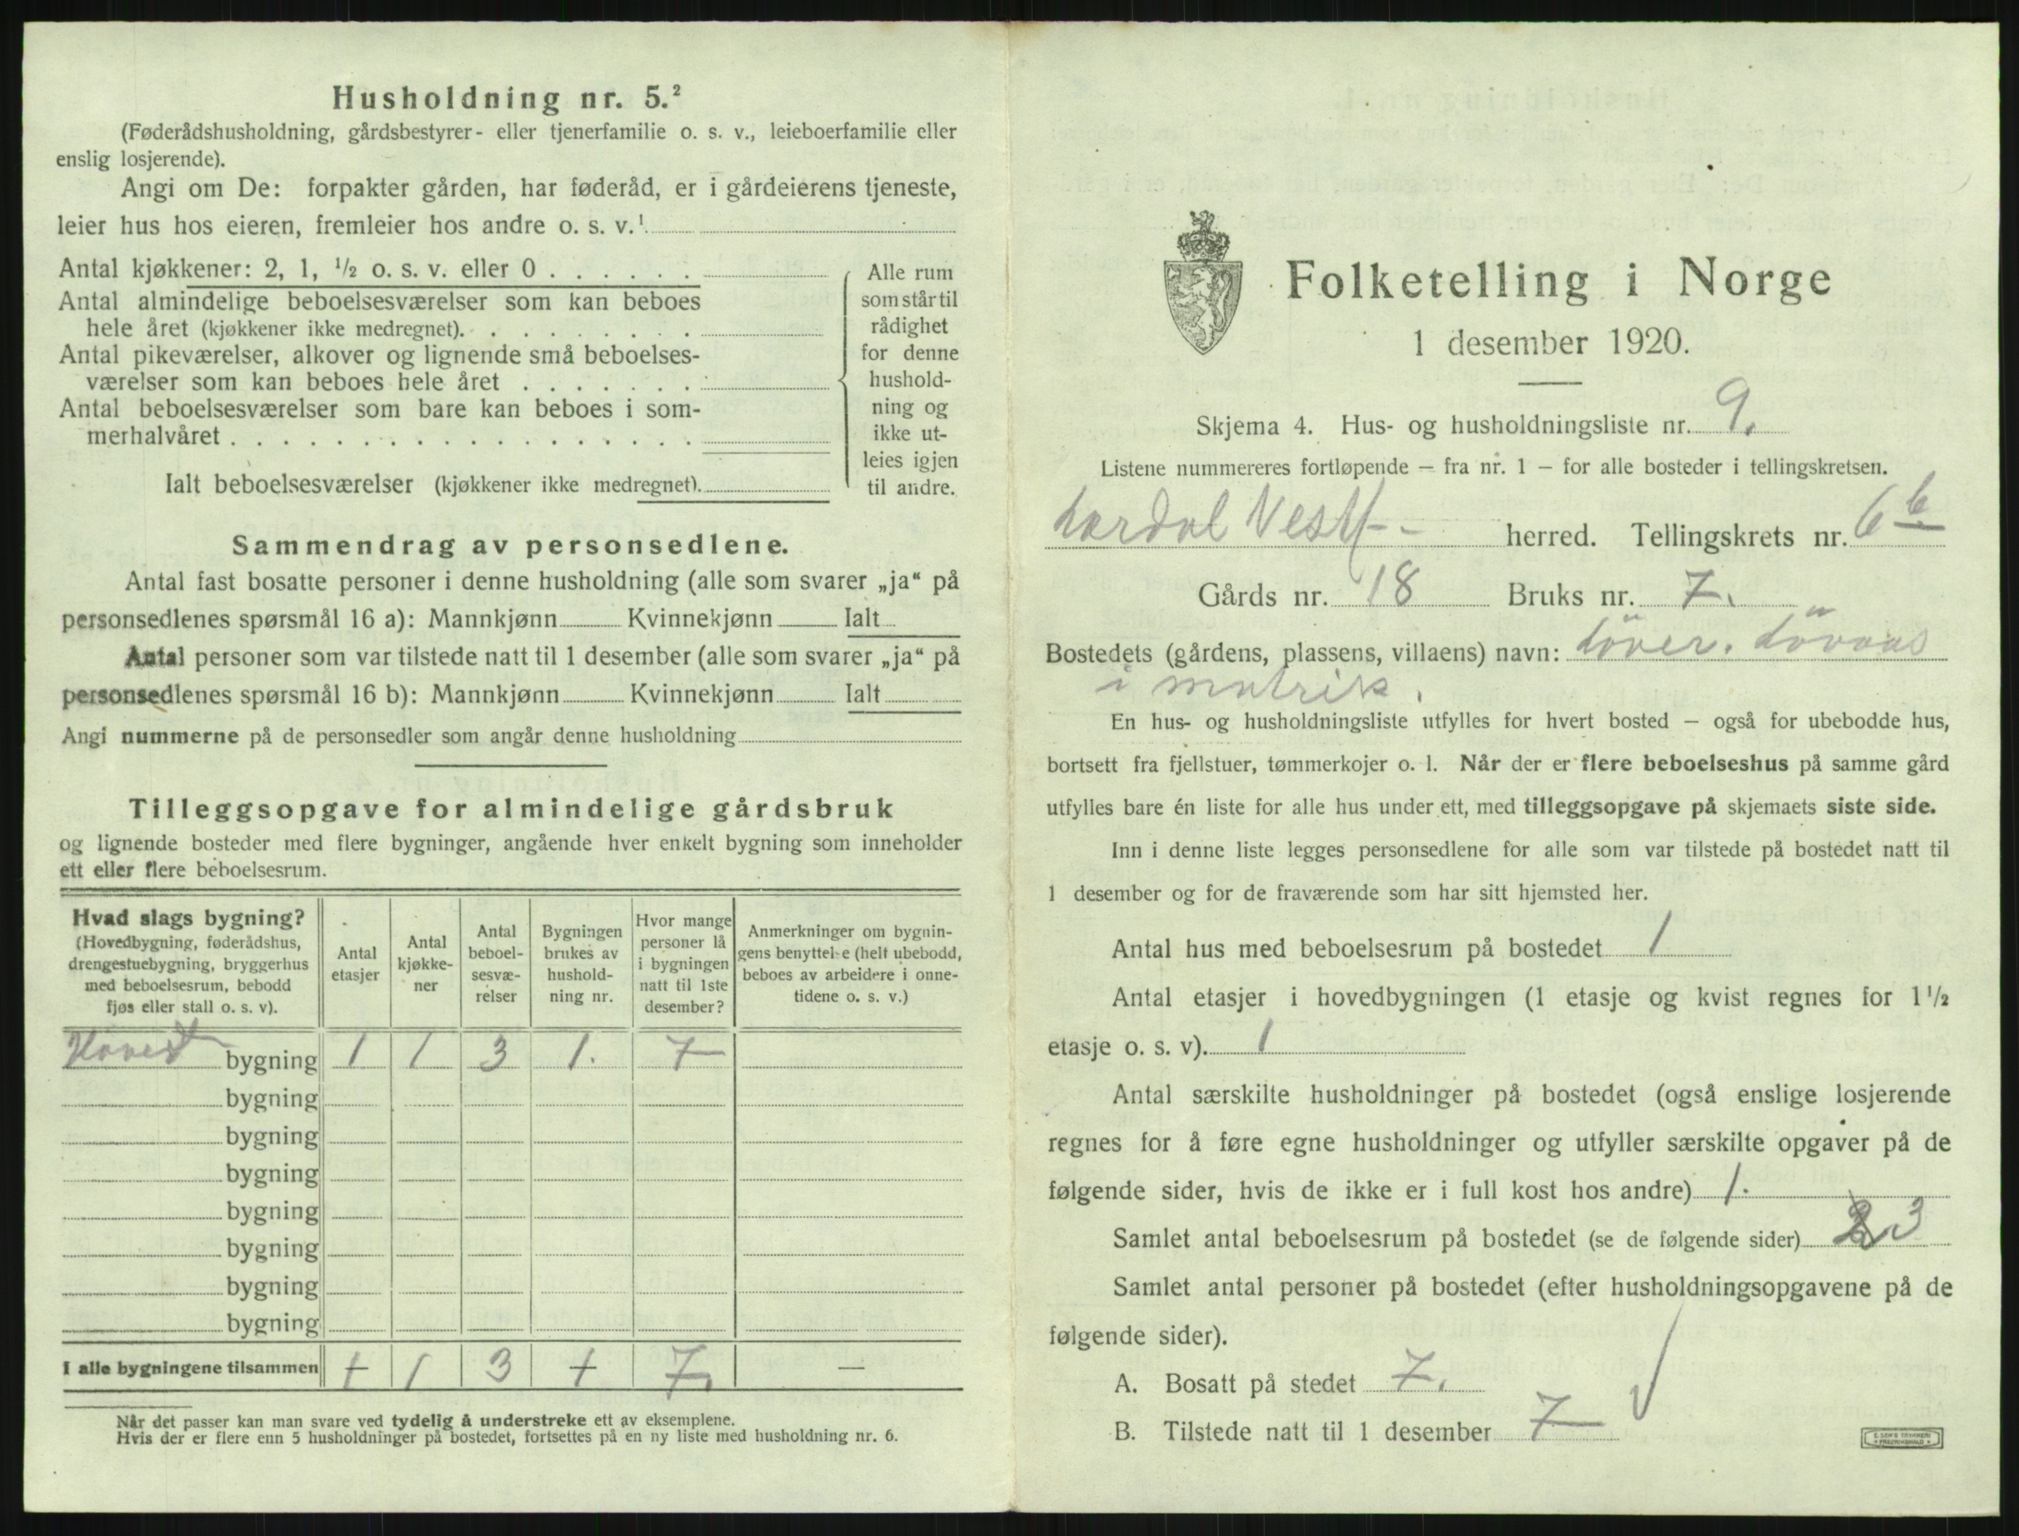 Husholdning nr. 5.²
(Føderådshusholdning, gårdsbestyrer- eller tjenerfamilie o. s. v., leieboerfamilie eller
enslig losjerende).
Angi om De: forpakter gården, har føderåd, er i gårdeierens tjeneste,
leier hus hos eieren, fremleier hos andre o. s. v.¹
Antal kjøkkener: 2, 1, ½ o. s. v. eller 0 . . . . . .
Antal almindelige beboelsesværelser som kan beboes
hele året (kjøkkener ikke medregnet). . . . . . . . .
Antal pikeværelser, alkover og lignende små beboelses-
værelser som kan beboes hele året . . . . . . .
Antal beboelsesværelser som bare kan beboes i som-
merhalvåret . . . . . . . . . . . . . . . . . .
Ialt beboelsesværelser (kjøkkener ikke medregnet).
Alle rum
som står til
rådighet
for denne
hushold-
ning og
ikke ut-
leies igjen
til andre.
Sammendrag av personsedlene.
Antal fast bosatte personer i denne husholdning (alle som svarer „ja“ på
personsedlenes spørsmål 16 a): Mannkjønn Kvinnekjønn Ialt
Antal personer som var tilstede natt til 1 desember (alle som svarer „ja“ på
personsedlenes spørsmål 16 b): Mannkjønn Kvinnekjønn Ialt
Angi nummerne på de personsedler som angår denne husholdning
Tilleggsopgave for almindelige gårdsbruk
og lignende bosteder med flere bygninger, angående hver enkelt bygning som inneholder
ett eller flere beboelsesrum.
Hvad slags bygning?
(Hovedbygning, føderådshus,
drengestuebygning, bryggerhus
med beboelsesrum, bebodd
fjøs eller stall o. s. v).
Antal
etasjer
Antal
kjøkke-
ner
Antal
beboel-
sesvæ-
relser
Bygningen
brukes av
hushold-
ning nr.
Hvor mange
personer lå
i bygningen
natt til 1ste
desember?
Anmerkninger om bygnin-
gens benyttelse (helt ubebodd,
beboes av arbeidere i onne-
tidene o. s. v.)
Hoved bygning 1 1 3 1. 7
bygning
bygning
bygning
bygning
bygning
bygning
bygning
I alle bygningene tilsammen + 1 3 + 7. —
Når det passer kan man svare ved tydelig å understreke ett av eksemplene.
Hvis der er flere enn 5 husholdninger på bostedet, fortsettes på en ny liste med husholdning nr. 6.
Folketelling i Norge
1 desember 1920.
Skjema 4. Hus- og husholdningsliste nr. 9.
Listene nummereres fortløpende – fra nr. 1 – for alle bosteder i tellingskretsen.
Lardal Vestf- - herred. Tellingskrets nr. 6 b
Gårds nr. 18 Bruks nr. 7.
Bostedets (gårdens, plassens, villaens) navn: Löver. Lövaas
i matrik.
En hus- og husholdningsliste utfylles for hvert bosted – også for ubebodde hus,
bortsett fra fjellstuer, tømmerkojer o. l. Når der er flere beboelseshus på samme gård
utfylles bare én liste for alle hus under ett, med tilleggsopgave på skjemaets siste side.
Inn i denne liste legges personsedlene for alle som var tilstede på bostedet natt til
1 desember og for de fraværende som har sitt hjemsted her.
Antal hus med beboelsesrum på bostedet 1
Antal etasjer i hovedbygningen (1 etasje og kvist regnes for 1½
etasje o. s. v). 1
Antal særskilte husholdninger på bostedet (også enslige losjerende
regnes for å føre egne husholdninger og utfyller særskilte opgaver på de
følgende sider, hvis de ikke er i full kost hos andre) 1.
Samlet antal beboelsesrum på bostedet (se de følgende sider) 3
Samlet antal personer på bostedet (efter husholdningsopgavene på de
følgende sider).
A. Bosatt på stedet 7.
B. Tilstede natt til 1 desember 7